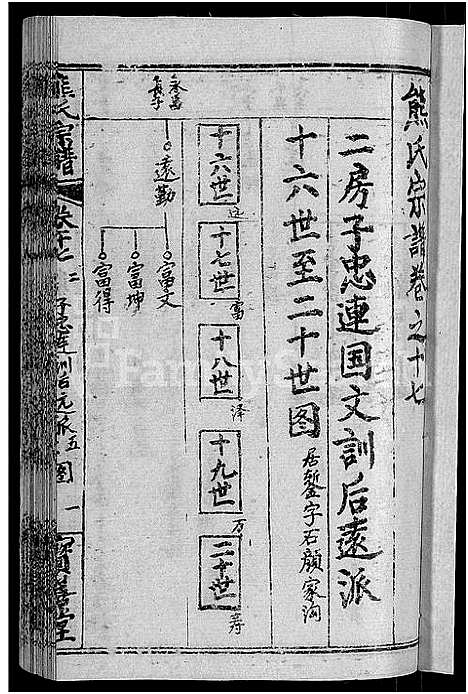 熊氏宗譜卷之十七
二房子忠連国文訓后遠派
十六世至二十世图
居鏨字石顔家沟
十六世
远
十七世
富
十八世
泽
十九世
万
二十世
寿
永富
長子
遠勤
富文
富坤
富得
熊氏宗譜
卷十七
子忠連訓后元派五图
一